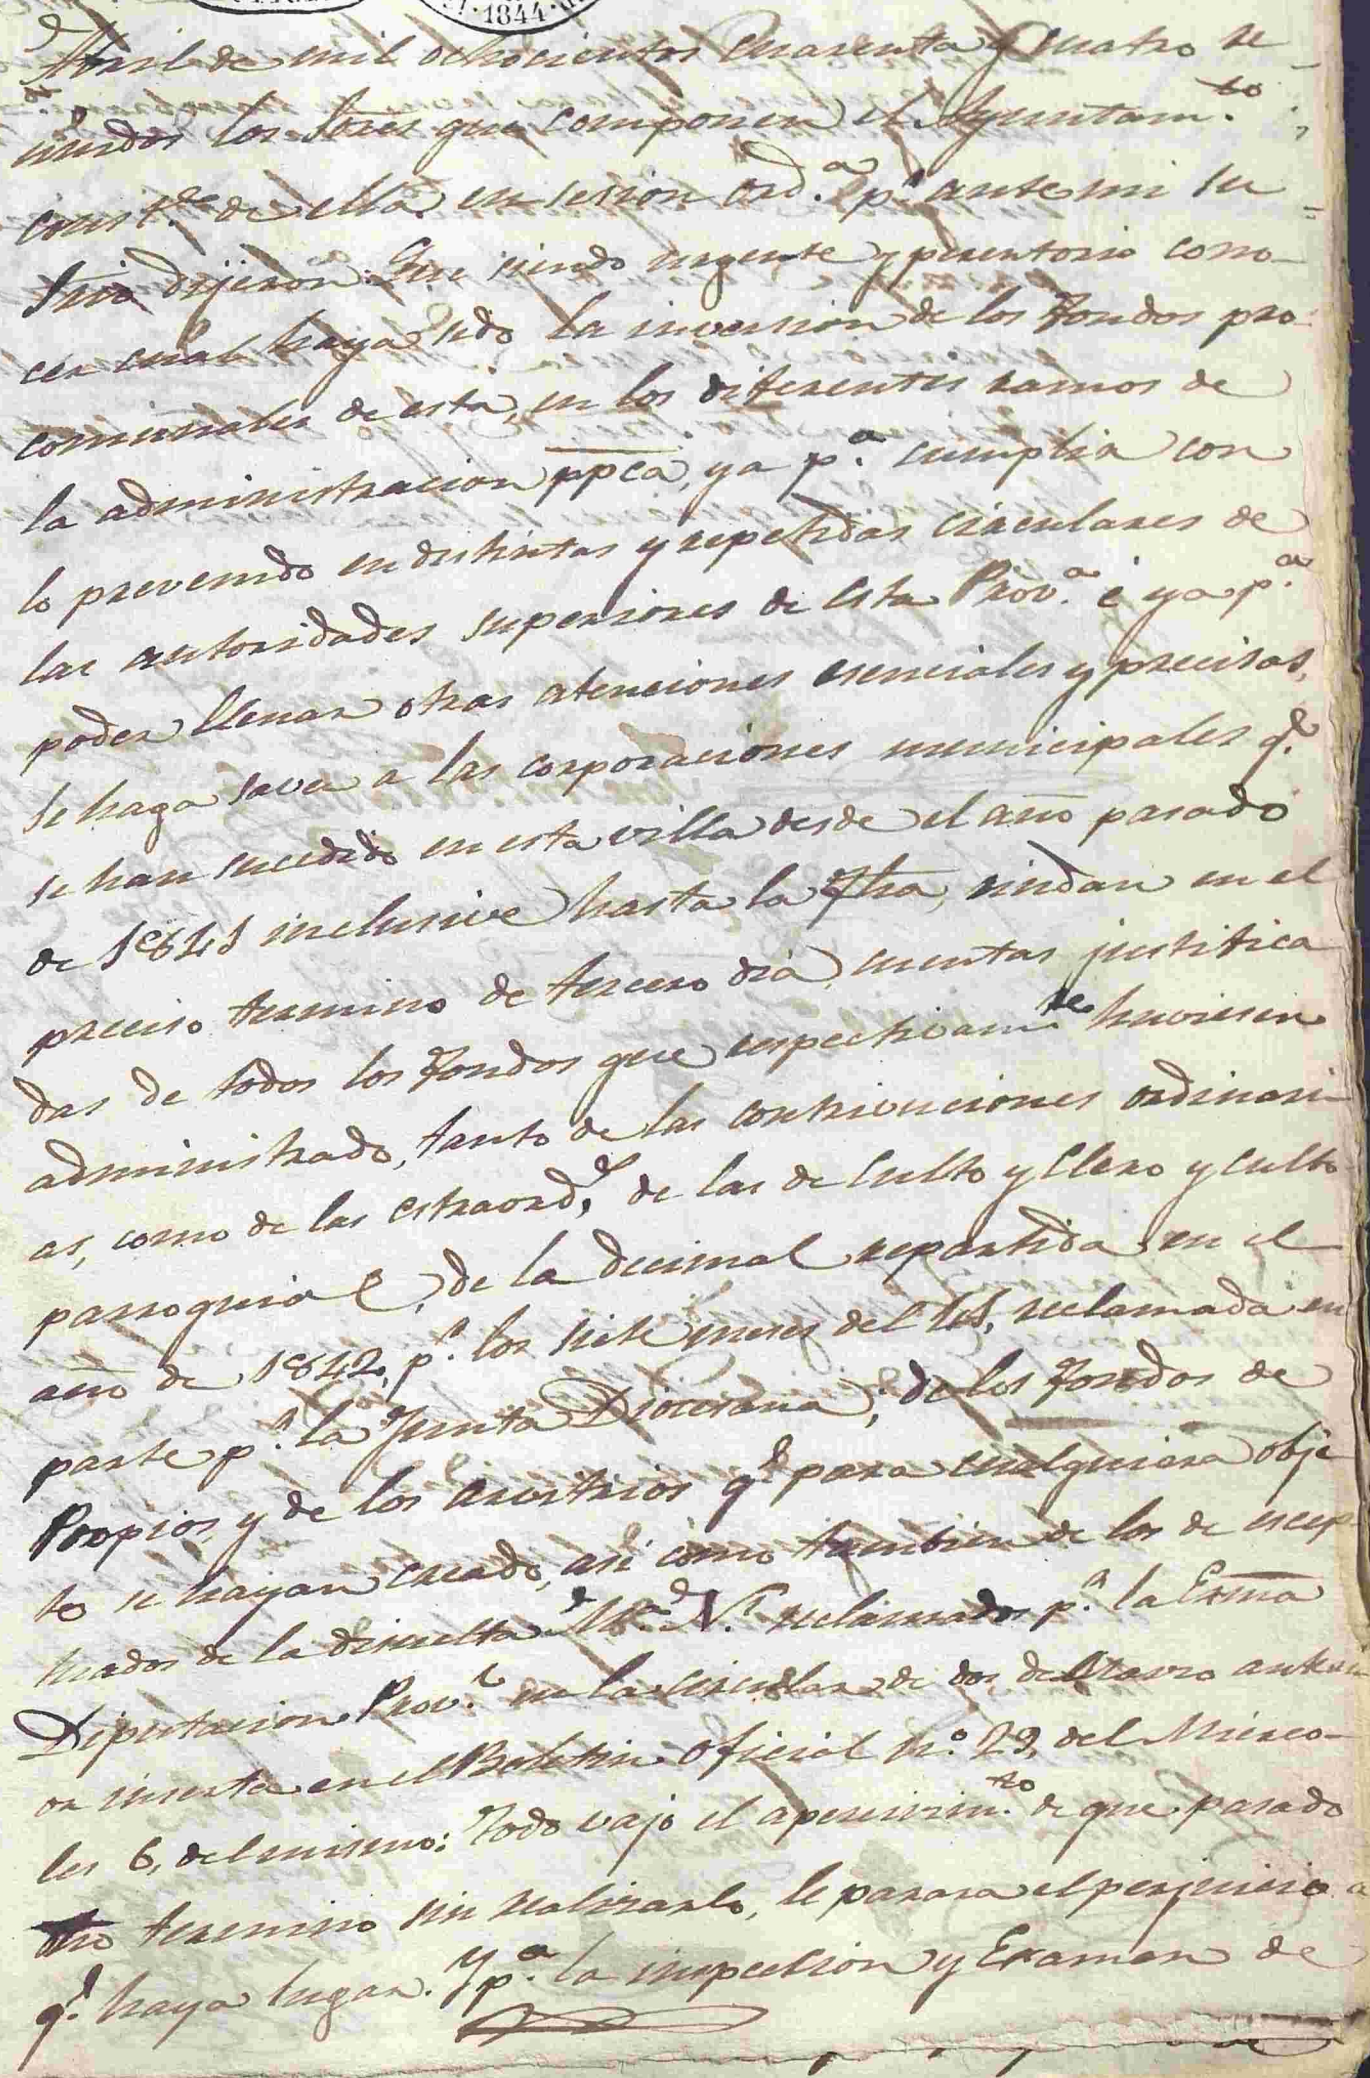 1844
Abril de mil ochocientos cuarenta y cuatro re
unidos los Sores que componen el Ayuntam.to
const.l de ella en sesion ord.a p.r ante mi su
Srio dijeron: Que siendo urgente y perentorio cono-
cer cual haya sido la inversion de los fondos pro
comunales de esta, en los diferentes ramos de
la administracion ppca, ya p.a cumplir con
lo prevenido en distintas y repetidas circulares de
las autoridades superiores de esta Prov.a é ya p.a
poder llenar otras atenciones esenciales y precisas,
se haga saver a las corporaciones municipales q.e
se han sucedido en esta villa desde el año pasado
de 1841 inclusive hasta la fha, rindan en el
preciso termino de tercero dia, cuentas justifica
das de todos los fondos que respectivam.te huviesen
administrado, tanto de las contrivuciones ordinari-
as, como de las estraord.s de las de Culto y Clero y culto
parroquial, de la decimal repartida en el
año de 1842, p.r los siete meses del 41, reclamada en
parte p.r la Junta Diocesana; de los fondos de
Propios, y de los arvitrios q.e para cualquiera obje
to se hayan creado, asi como tambien de los de
de la disuelta M. N. reclamados p.r la Exma
Diputacion Prov.l en la circular de dos de anteri
or inserta en el Boletin oficial n.o 29, del Mierco-
les 6, del mismo: Todo vajo el apercivim.to de que pasado
dho termino sin realizarlo, le parara el perjuicio a
q.e haya lugar. Y p.a la inspeccion y Examen de